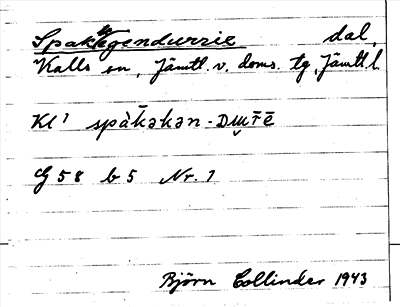 Spaktegendurrie dal,
Kalls sn, Jämtl. v. doms. tg, Jämtl. l.
Kl' spàkəkən-Dɯr̄ē
G 58 b 5 Nr. 1
Björn Collinder 1943